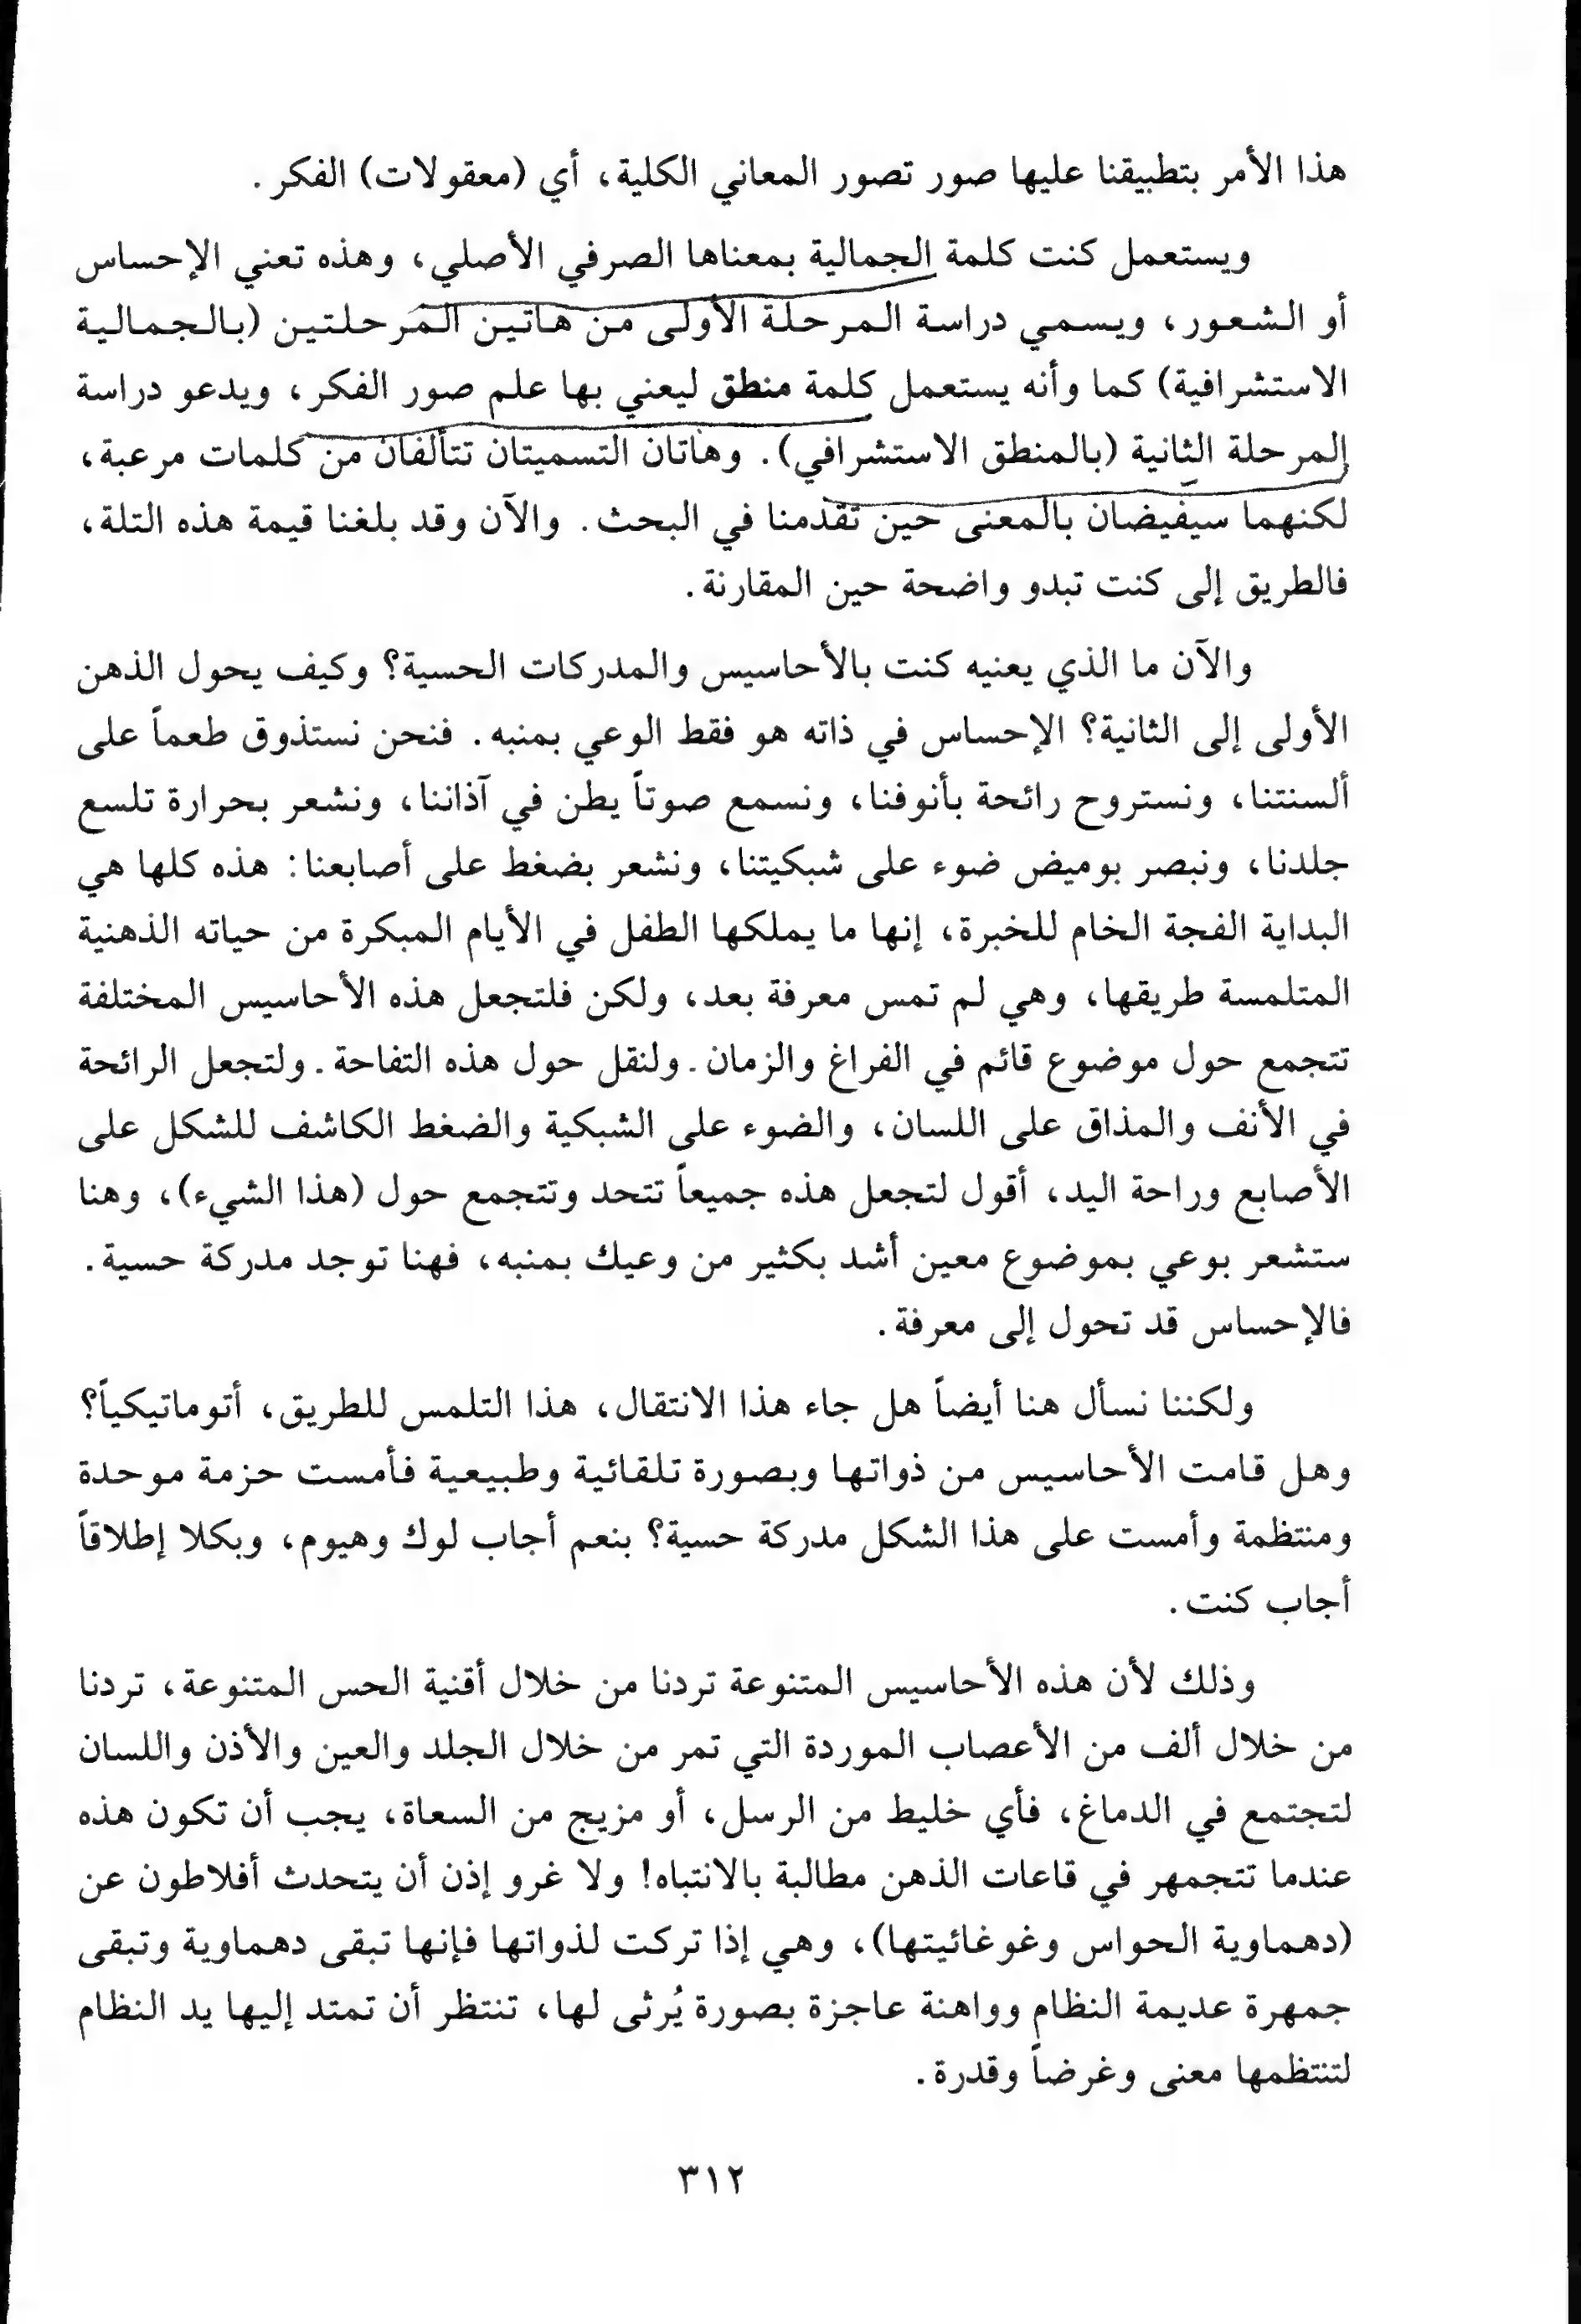 هذا الأمر بتطبيقنا عليها صور تصور المعاني الكلية، أي (معقولات) الفكر.
ويستعمل كنت كلمة الجمالية بمعناها الصرفي الأصلي، وهذه تعني الإحساس
أو الشعور، ويسمي دراسة المرحلة الأولى من هاتين المرحلتين (بالجمالية
الاستشرافية) كما وأنه يستعمل كلمة منطق ليعني بها علم صور الفكر، ويدعو دراسة
المرحلة الثانية (بالمنطق الاستشرافي). وهاتان التسميتان تتألفان من كلمات مرعبة،
لكنهما سيفيضان بالمعنى حين تقدمنا في البحث. والآن وقد بلغنا قيمة هذه التلة،
فالطريق إلى كنت تبدو واضحة حين المقارنة.
والآن ما الذي يعنيه كنت بالأحاسيس والمدركات الحسية؟ وكيف يحول الذهن
الأولى إلى الثانية؟ الإحساس في ذاته هو فقط الوعي بمنبه. فنحن نستذوق طعماً على
ألسنتنا، ونستروح رائحة بأنوفنا، ونسمع صوتاً يطن في آذاننا، ونشعر بحرارة تلسع
جلدنا، ونبصر بوميض ضوء على شبكيتنا، ونشعر بضغط على أصابعنا: هذه كلها هي
البداية الفجة الخام للخبرة، إنها ما يملكها الطفل في الأيام المبكرة من حياته الذهنية
المتلمسة طريقها، وهي لم تمس معرفة بعد، ولكن فلتجعل هذه الأحاسيس المختلفة
تتجمع حول موضوع قائم في الفراغ والزمان. ولنقل حول هذه التفاحة. ولتجعل الرائحة
في الأنف والمذاق على اللسان، والضوء على الشبكية والضغط الكاشف للشكل على
الأصابع وراحة اليد، أقول لتجعل هذه جميعاً تتحد وتتجمع حول (هذا الشيء)، وهنا
ستشعر بوعي بموضوع معين أشد بكثير من وعيك بمنبه، فهنا توجد مدركة حسية.
فالإحساس قد تحول إلى معرفة.
ولكننا نسأل هنا أيضاً هل جاء هذا الانتقال، هذا التلمس للطريق، أتوماتيكياً؟
وهل قامت الأحاسيس من ذواتها وبصورة تلقائية وطبيعية فأمست حزمة موحدة
ومنتظمة وأمست على هذا الشكل مدركة حسية؟ بنعم أجاب لوك وهيوم، وبكلا إطلاقاً
أجاب كنت.
وذلك لأن هذه الأحاسيس المتنوعة تردنا من خلال أقنية الحس المتنوعة، تردنا
من خلال ألف من الأعصاب الموردة التي تمر من خلال الجلد والعين والأذن واللسان
لتجتمع في الدماغ، فأي خليط من الرسل، أو مزيج من السعاة، يجب أن تكون هذه
عندما تتجمهر في قاعات الذهن مطالبة بالانتباه! ولا غرو إذن أن يتحدث أفلاطون عن
(دهماوية الحواس وغوغائيتها)، وهي إذا تركت لذواتها فإنها تبقى دهماوية وتبقى
جمهرة عديمة النظام وواهنة عاجزة بصورة يُرثى لها، تنتظر أن تمتد إليها يد النظام
لتنتظمها معنى وغرضاً وقدرة.
٣١٢